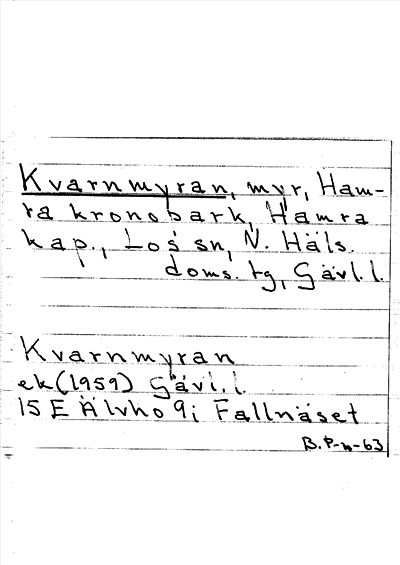 Kvarnmyran, myr, Ham-
ra kronobark, Hamra
kap., Los sn, N. Häls.
doms. tg, Gävl. l.
Kvarnmyran
ek (1959) Gävl. l.
15 E Älvho 9i Fallnäset
B. P-n-63